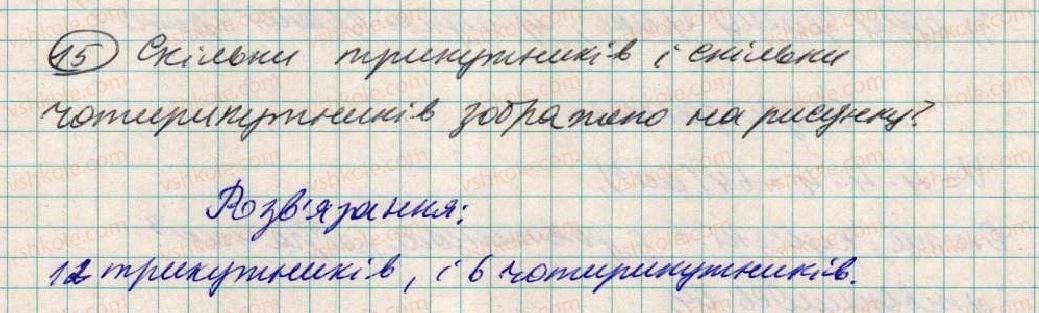 15 Скільки трикутників і скільки
чотирикутників зображено на рисунку?
Розв'язання:
12 трикутників, і 6 чотирикутників.